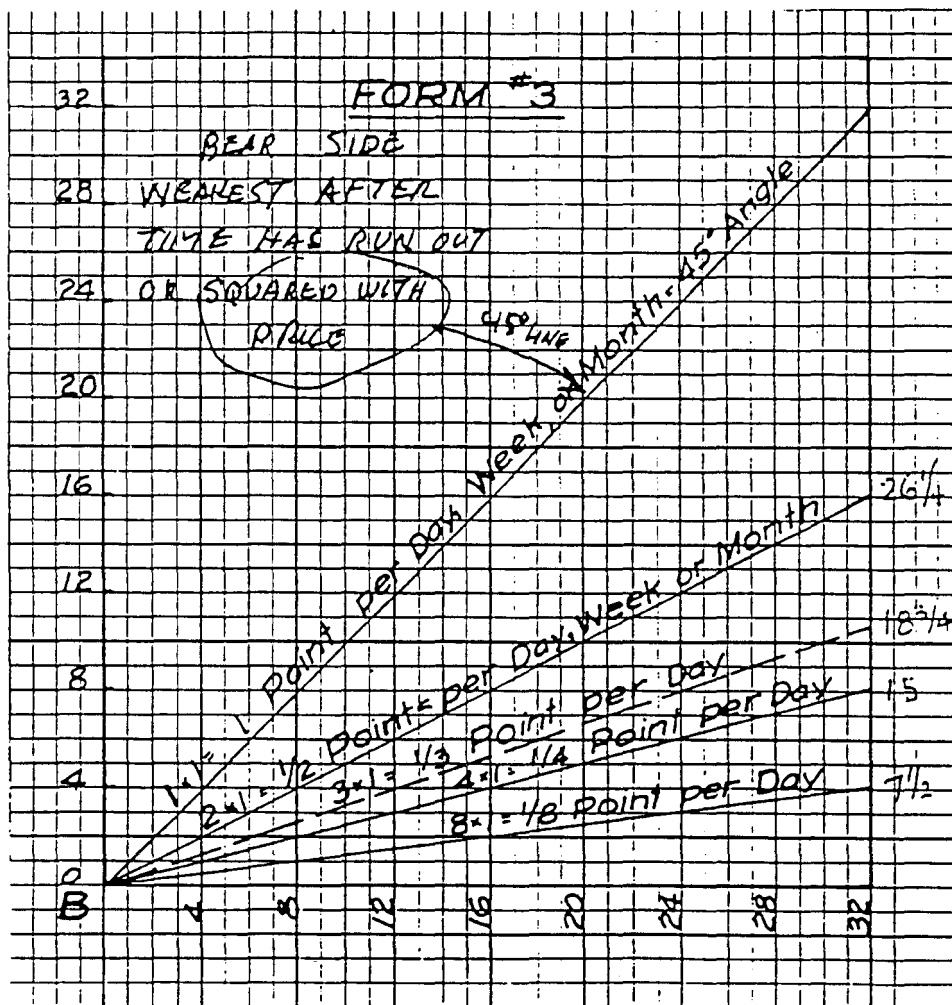 FORM #3
32
BEAR SIDE
28 WEAKEST AFTER
TIME HAS RUN OUT
24 OR SQUARED WITH
PRICE
45° LINE
20
16
12
8
4
0
B
1x1= 1 Point per Day, Week, or Month = 45° Angle
2x1= 1/2 Point= per Day, Week or Month 26 1/4
3x1= 1/3 Point per Day 18 3/4
4x1= 1/4 Point per Day 15
8x1= 1/8 Point per Day 7 1/2
4 8 12 16 20 24 28 32